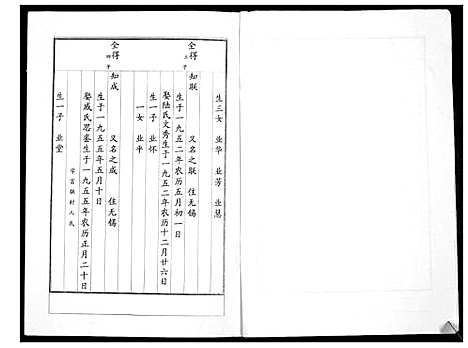 生三女 业华 业芳 业慧
全得 三子 知联 又名之联 住无锡
生于一九五二年农历五月初一日
娶陆氏文秀生于一九五二年农历十二月廿六日
生一子 业怀
一女 业平
全得 四子 知成 又名之成 住无锡
生于一九五五年五月十日
娶戚氏思銮生于一九五五年农历正月二十日
生一子 业堂